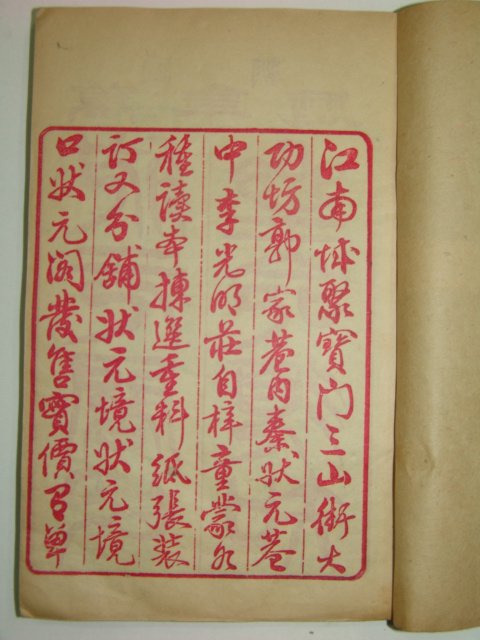 江南城聚寶门三山街大
功坊郭家巷内秦状元巷
中李光明莊自梓童蒙各
種讀本揀選重料紙張装
訂又分舖状元境状元境
口状元阁發售實價另單